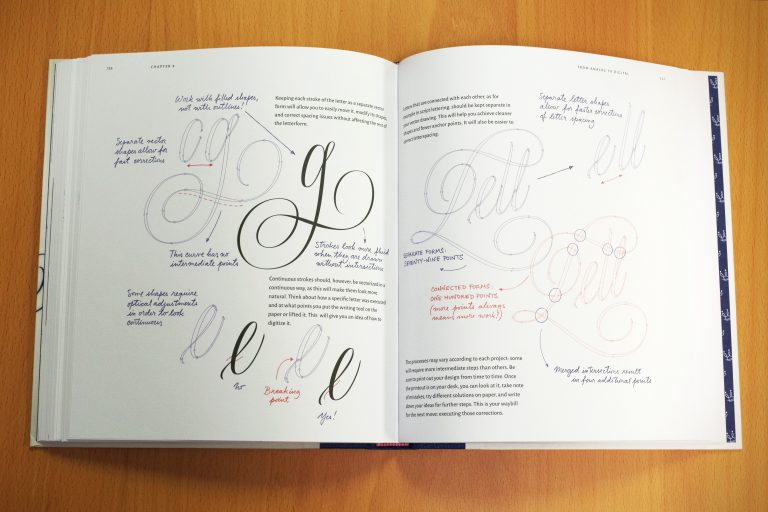 CHAPTER 5
Work with filled shapes,
not with outlines!
Keeping each stroke of the letter as a separate vector
form will allow you to easily move it, modify its shapes,
and correct spacing issues without affecting the rest of
the letterform.
Separate vector
shapes allow for
fast corrections
This curve has no
intermediate points
Strokes look more fluid
when they are drawn
without intersections
Continuous strokes should, however, be vectorized in a
continuous way, as this will make them look more
natural. Think about how a specific letter was executed
and at what points you put the writing tool on the
paper or lifted it. This will give you an idea of how to
digitize it.
Some shapes require
optical adjustments
in order to look
continuous
No
Breaking
point
Yes!
FROM ANALOG TO DIGITAL
that are connected with each other, as for
example in script lettering, should be kept separate in
your vector drawing. This will help you achieve cleaner
shapes and fewer anchor points. It will also be easier to
correct letterspacing.
Separate letter shapes
allow for faster correction
of letter spacing
Tell
ell
SEPARATE FORMS:
SEVENTY-NINE POINTS
CONNECTED FORMS:
ONE HUNDRED POINTS
(more points always
means more work!)
Tell
Merged intersections result
in four additional points
The processes may vary according to each project: some
will require more intermediate steps than others. Be
sure to print out your design from time to time. Once
the printout is on your desk, you can look at it, take note
of mistakes, try different solutions on paper, and write
down your ideas for further steps. This is your waybill
for the next move: executing those corrections.